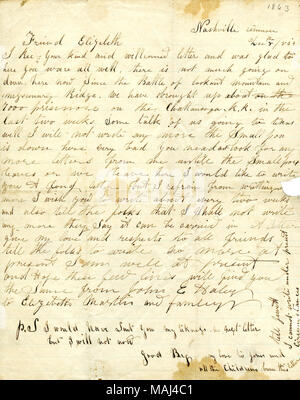 1863
Nashville
Friend Elizebeth
I Rec. Your kind and wellcomed letter and was glad to
hear you ware all well, there is not much going on
down here now Since the Battle of Lookout mountain and
missionary Ridge, we have brought up about
7000 prisoners on the Chattanooga R.R. in the
last two weeks Some talk of us going to texas
well I will not write any more the Small pox
is down here very bad you nead not look for any
more letters from me untill the Smallpox
leaves or we leave here I would like to write
you a long letter but I refrain from writing
more I wish you to write about every two weeks
and also tell the folks that I Shall not write
any more they Say it can be carried in a letter
give my love and respects to all friends
tell the folks to write
present I am well at present
and Hope these few lines will find you
the Same from John E Haley
to Elizebeth Martin and family
P.S I would have Sent you my likeness in next letter
but I will not now
Good By my love to John and
all the Children
alamy
Image ID: MAJ4C1
www.alamy.com